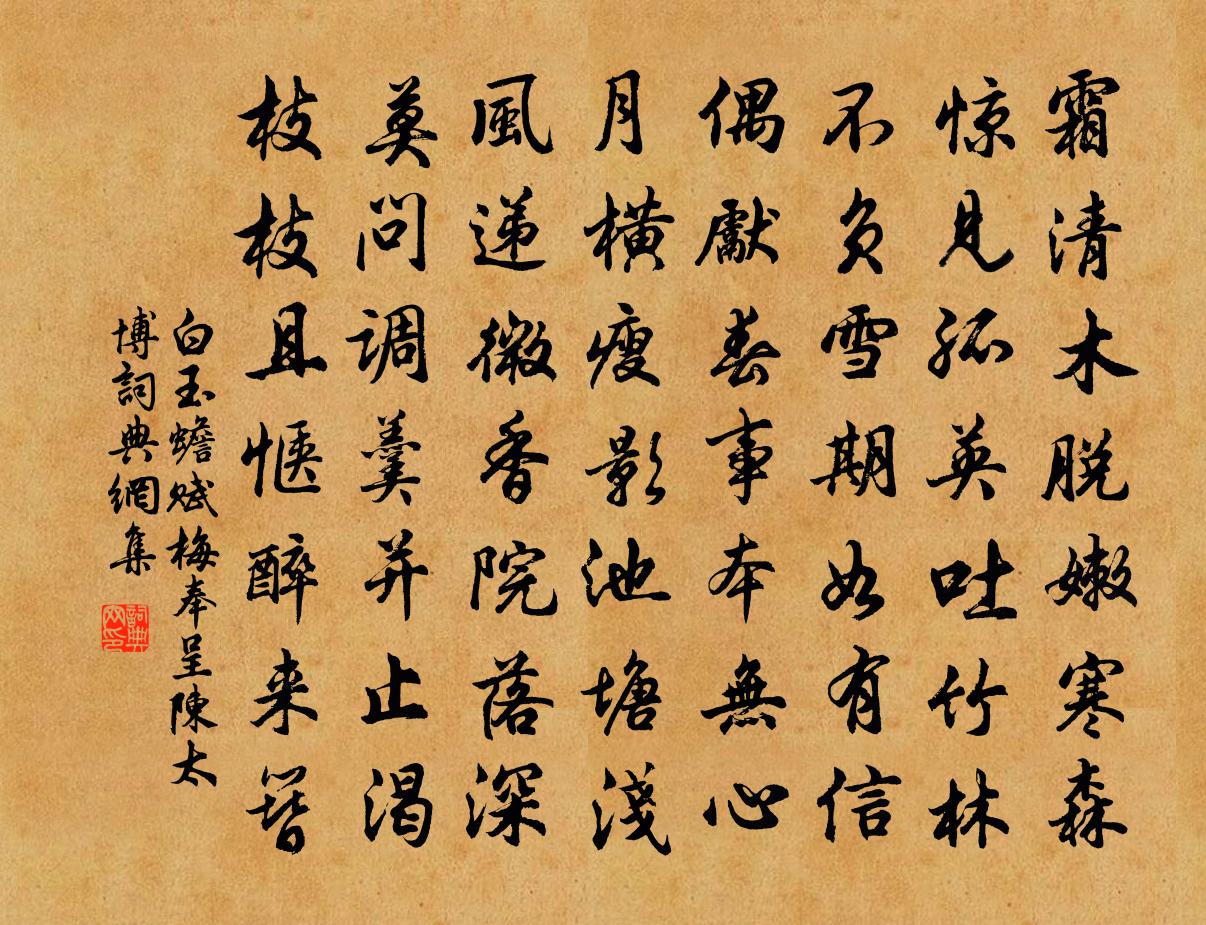 霜清木脱嫩寒森
惊見孤英吐竹林
不負雪期如有信
偶獻春事本無心
月横瘦影池塘淺
風递微香院落深
莫問调羹并止渴
枝枝且惬醉来簪
白玉蟾赋梅奉呈陳太
博詞典網集
詞典网印